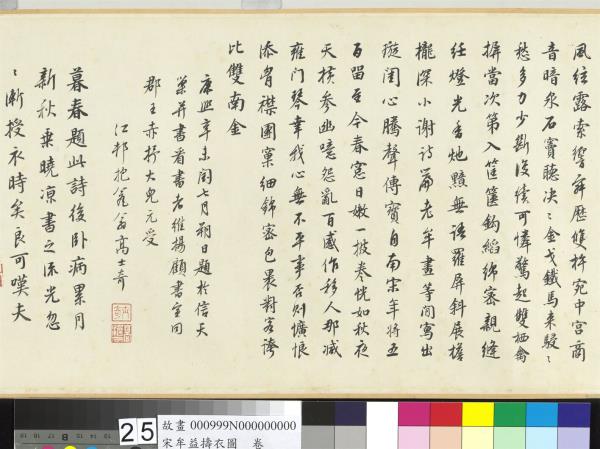 風往露索響舜歷雙杵宛中宮商
音暗泉石竇聽決〻金戈鐵馬來駸〻
愁多力少斷復續可憐驚起雙栖禽
摒當次第入筐篋鈎縚綿密親縫
紝燈光香灺黯無語羅屏斜展擋
櫳深小謝詩篇老牟畫等閒寫出
璇閨心騰聲傳寶自南宋年將五
百留至今春窓日嫩一披卷恍如秋夜
天橫參幽噫怨亂百感作移人那減
雍門琴幸我心無不平事否則懭悢
添胷襟團窠細錦密包裹對客誇
比雙南金
康熙辛未閏七月朔日題於信天
巢并書者書者維揚顧書宣同
郡王赤抒大兒元受
江邨抱瓮翁高士奇
暮春題此詩後卧病累月
新秋乗曉涼書之流光忽
〻漸授衣時矣良可嘆夫
25
故畫 000999N000000000
宋牟益擣衣圖 卷